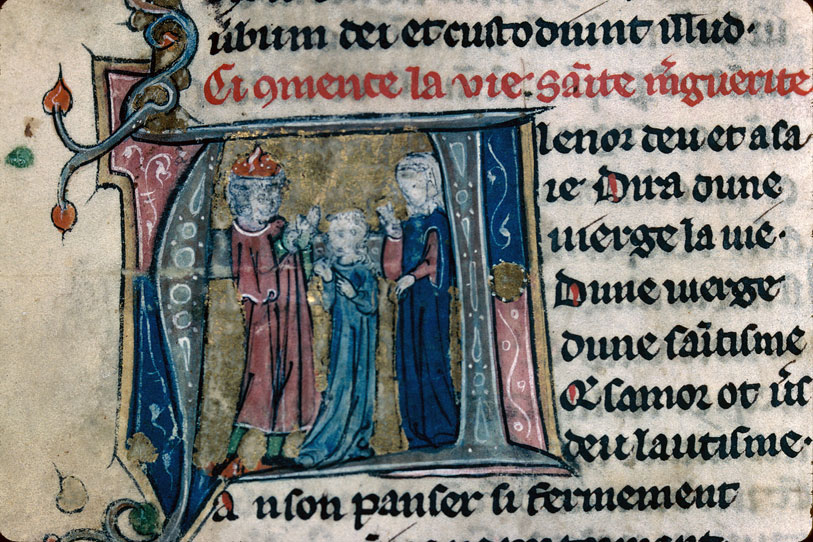 ūbum dei et custodiunt illud.
Ci ꝯmence la vie. sāīte m̄guerite
A lenor deu et a sa
ie Dira dune
uierge la uie.
Dune uierge
dune sāītisme
Q̄ samor ot ūs
deu lautisme.
A n son panser si fermement